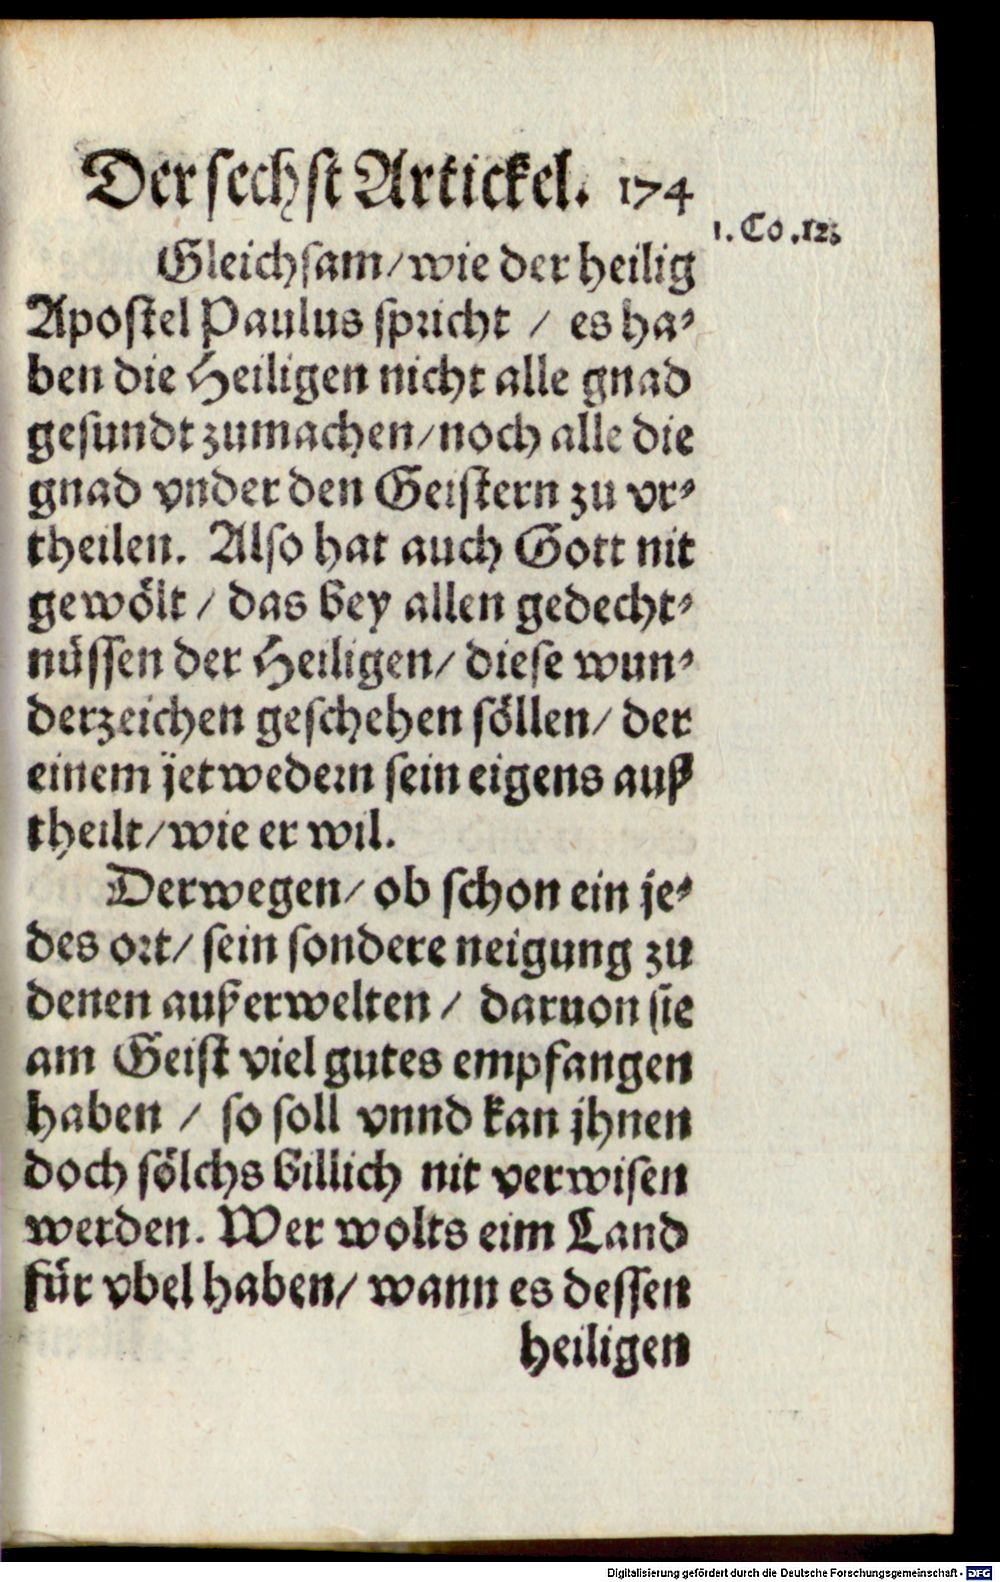 Der sechst Artickel. 174
1. Co. 12.
Gleichsam/ wie der heilig
Apostel Paulus spricht / es ha-
ben die Heiligen nicht alle gnad
gesundt zumachen/ noch alle die
gnad vnder den Geistern zu vr-
theilen. Also hat auch Gott nit
gewölt / das bey allen gedecht-
nüssen der Heiligen/ diese wun-
derzeichen geschehen söllen/ der
einem jetwedern sein eigens auß
theilt/ wie er wil.
Derwegen/ ob schon ein je-
des ort/ sein sondere neigung zu
denen außerwelten / daruon sie
am Geist viel gutes empfangen
haben / so soll vnnd kan jhnen
doch sölchs billich nit verwisen
werden. Wer wolts eim Land
für vbel haben/ wann es dessen
heiligen
Digitalisierung gefördert durch die Deutsche Forschungsgemeinschaft - DFG